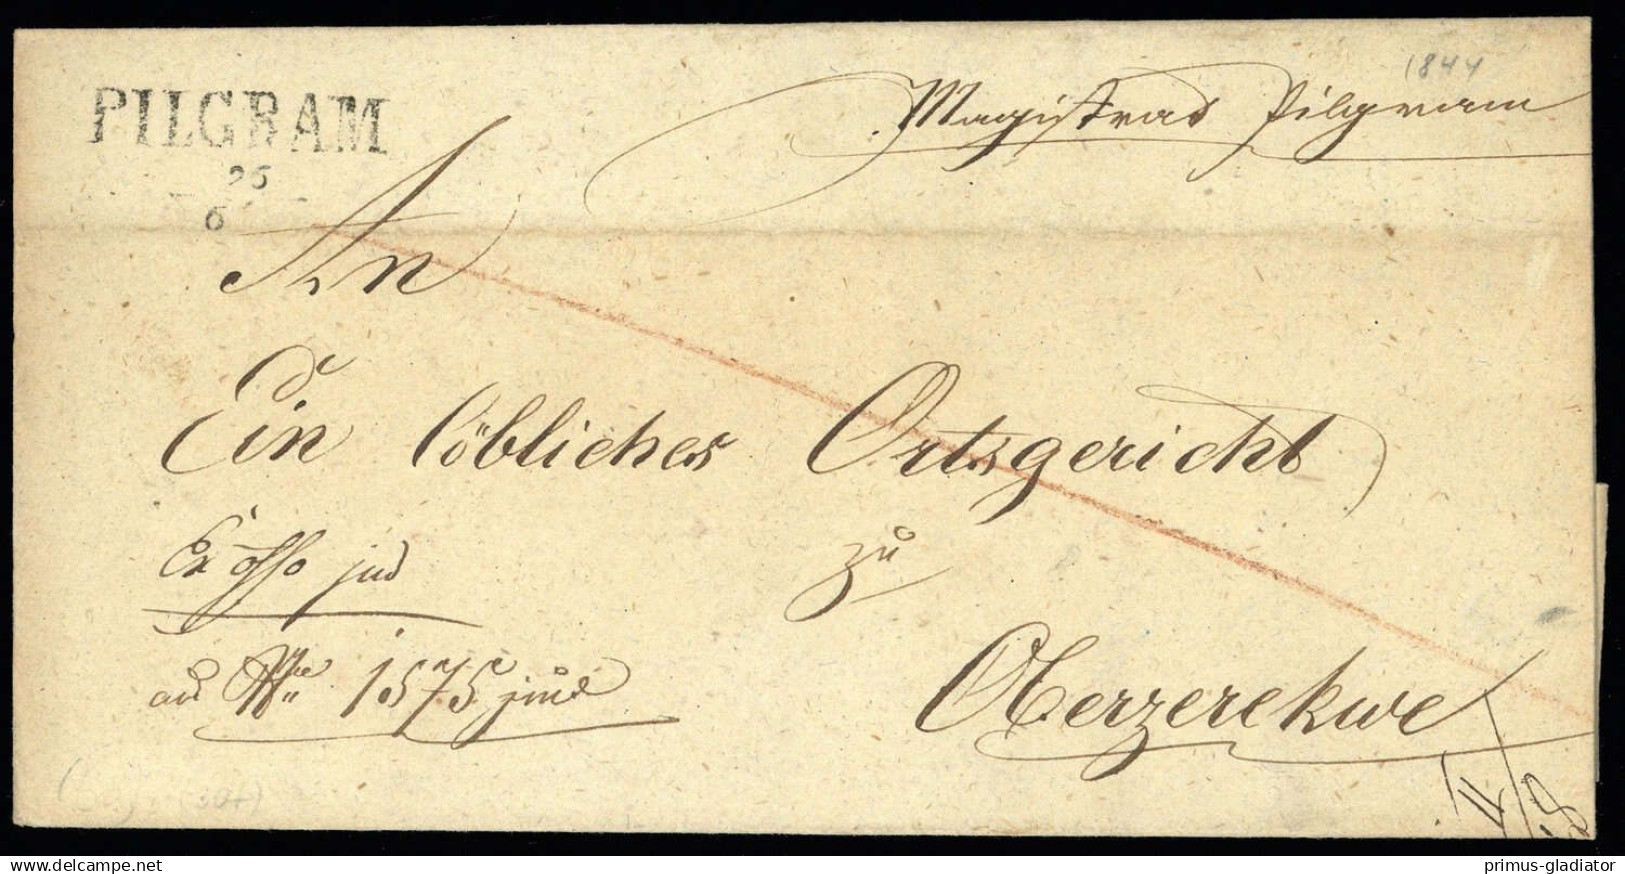 1844
Magistrat Pilgram
PILGRAM
26
6
An
Ein löbliches Ortsgericht
Ex offo jud
zu
ad Nr 1575 jud
Oberzerekwe
delcampe.net
primus-gladiator